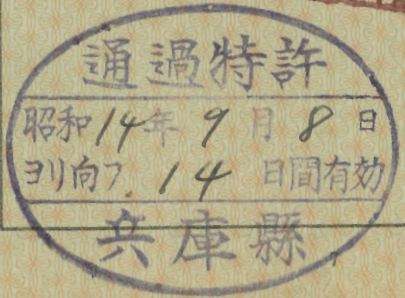 通過特許
昭和14年9月8日
ヨリ向フ14日間有効
兵庫縣